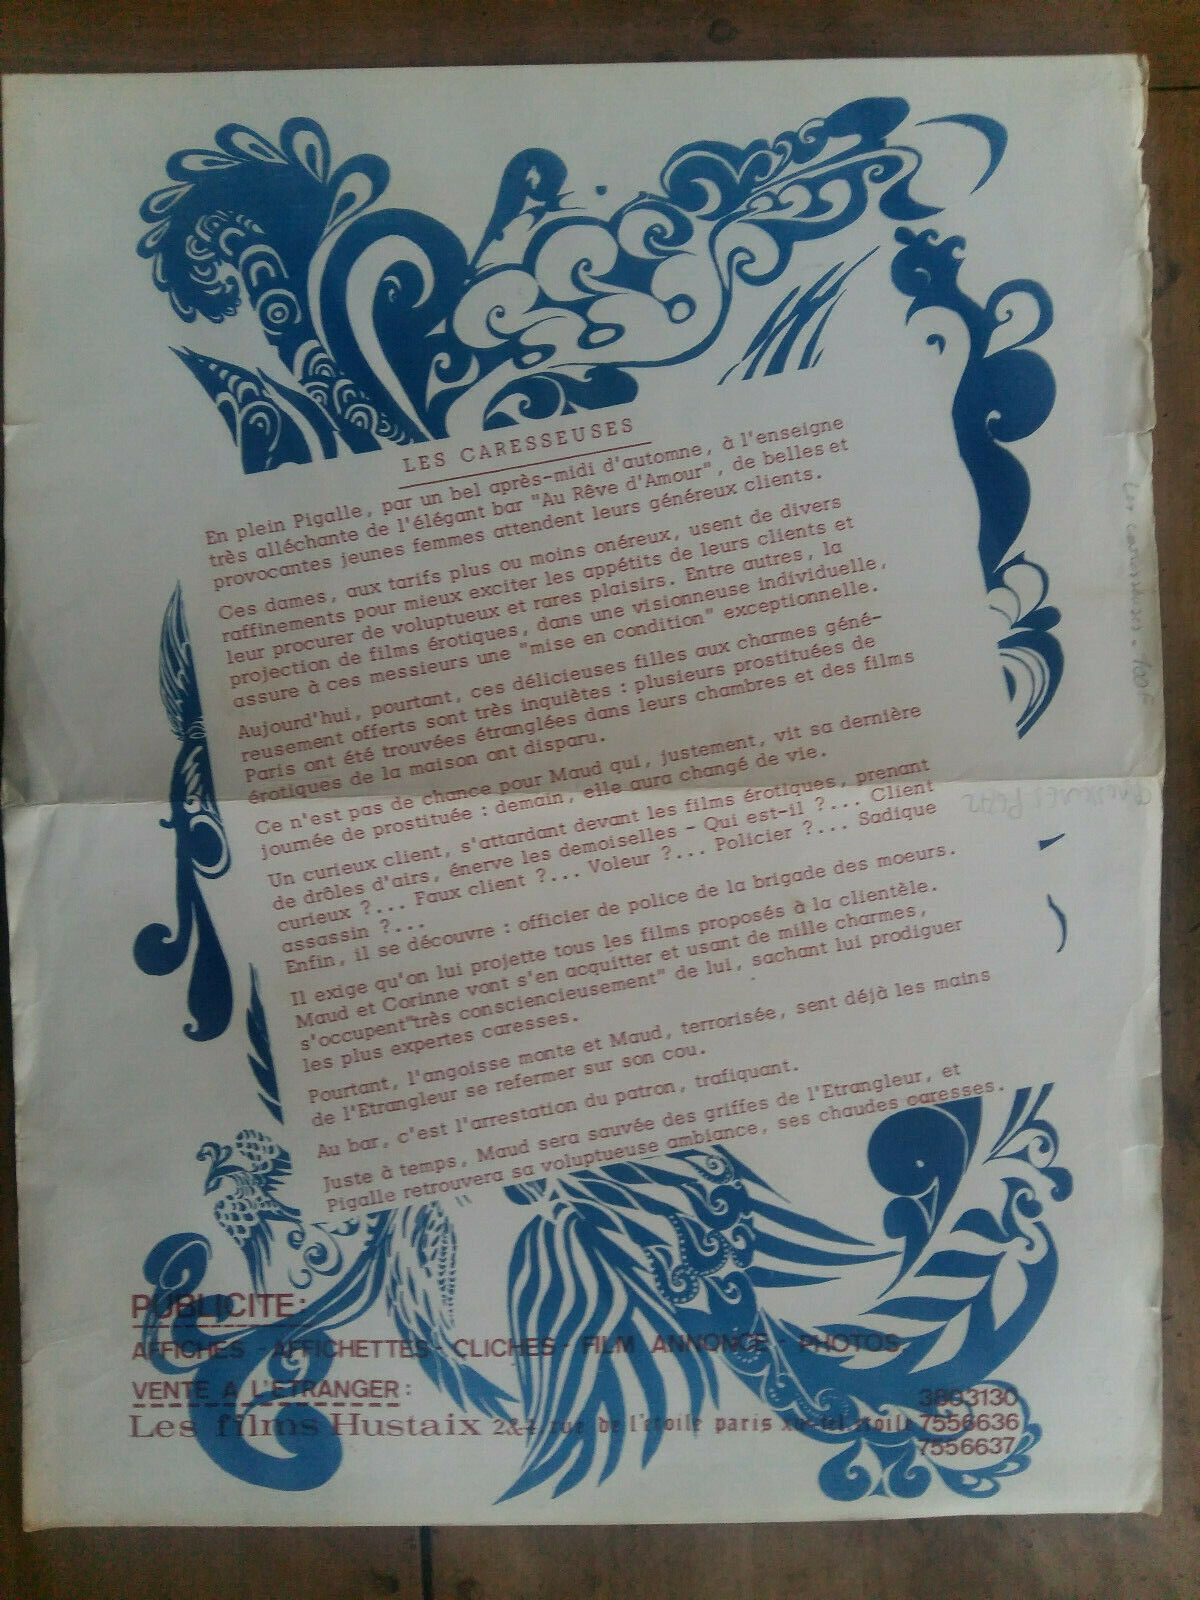 LES CARESSEUSES
En plein Pigalle, par un bel après-midi d'automne, à l'enseigne
très alléchante de l'élégant bar "Au Rêve d'Amour", de belles et
provocantes jeunes femmes attendent leurs généreux clients.
Ces dames, aux tarifs plus ou moins onéreux, usent de divers
raffinements pour mieux exciter les appétits de leurs clients et
leur procurer de voluptueux et rares plaisirs. Entre autres, la
projection de films érotiques, dans une visionneuse individuelle,
assure à ces messieurs une "mise en condition" exceptionnelle.
Aujourd'hui, pourtant, ces délicieuses filles aux charmes géné-
reusement offerts sont très inquiètes : plusieurs prostituées de
Paris ont été trouvées étranglées dans leurs chambres et des films
érotiques de la maison ont disparu.
Ce n'est pas de chance pour Maud qui, justement, vit sa dernière
journée de prostituée : demain, elle aura changé de vie.
Un curieux client, s'attardant devant les films érotiques, prenant
de drôles d'airs, énerve les demoiselles - Qui est-il ?... Client
curieux ?... Faux client ?... Voleur ?... Policier ?... Sadique
assassin ?...
Enfin, il se découvre : officier de police de la brigade des moeurs.
Il exige qu'on lui projette tous les films proposés à la clientèle.
Maud et Corinne vont s'en acquitter et usant de mille charmes,
s'occupent "très consciencieusement" de lui, sachant lui prodiguer
les plus expertes caresses.
Pourtant, l'angoisse monte et Maud, terrorisée, sent déjà les mains
de l'Etrangleur se refermer sur son cou.
Au bar, c'est l'arrestation du patron, trafiquant.
Juste à temps, Maud sera sauvée des griffes de l'Etrangleur, et
Pigalle retrouvera sa voluptueuse ambiance, ses chaudes caresses.
PUBLICITE:
AFFICHES - AFFICHETTES - CLICHES - FILM ANNONCE - PHOTOS
VENTE A L'ETRANGER: 3803130
Les films Hustaix 2&4 rue de l'étoile paris tel étoile 7556636
7556637
Les caresseuses. 100F